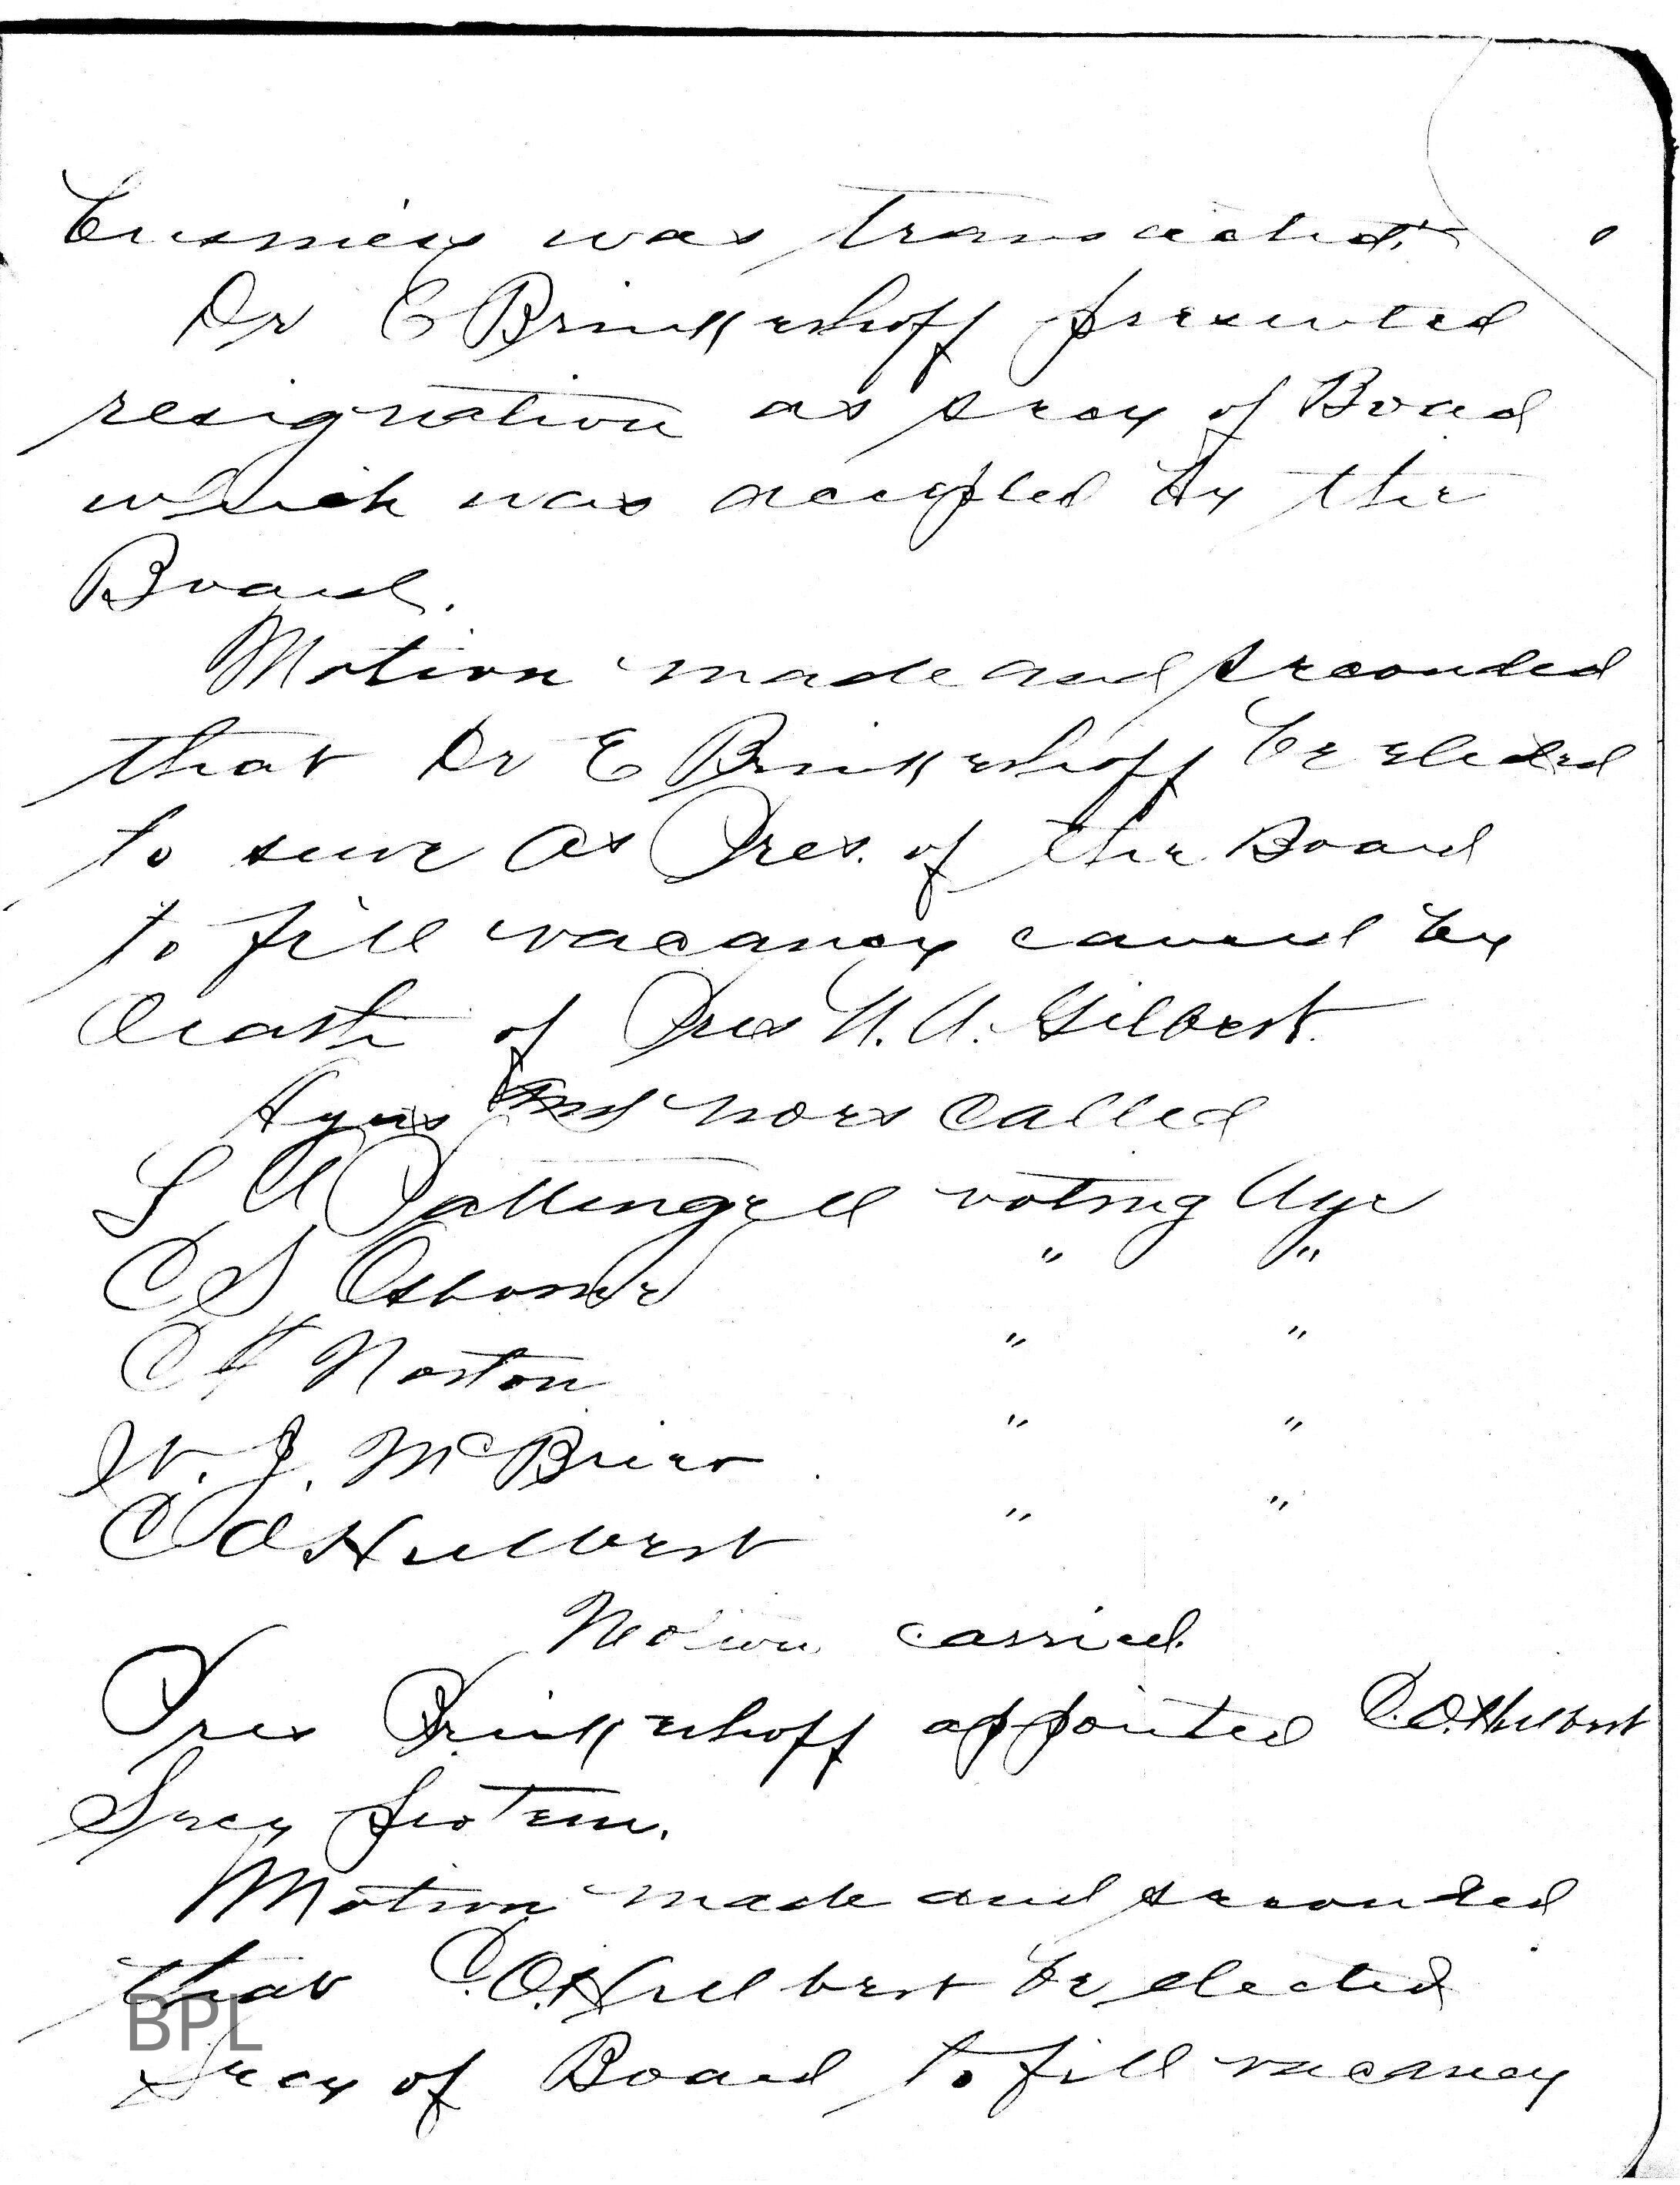 business was transacted.
Dr E Brinkerhoff presented
resignation as secy of Board
which was accepted by the
Board.
Motion made and seconded
that Dr E Brinkerhoff be elected
to serve as Pres. of the Board
to fill vacancy caused by
Death of Pres Gilbert.
Ayes and noes called
S A Pattengell voting Aye
C S Osborne " "
C H Norton " "
W. J. McBrier " "
C O Hulbert " "
Motion carried.
Pres Brinkerhoff appointed C.O. Hulbert
Secy protem.
Motion made and seconded
that C.O. Hulbert be elected
BPL
Secy of Board to fill vacancy